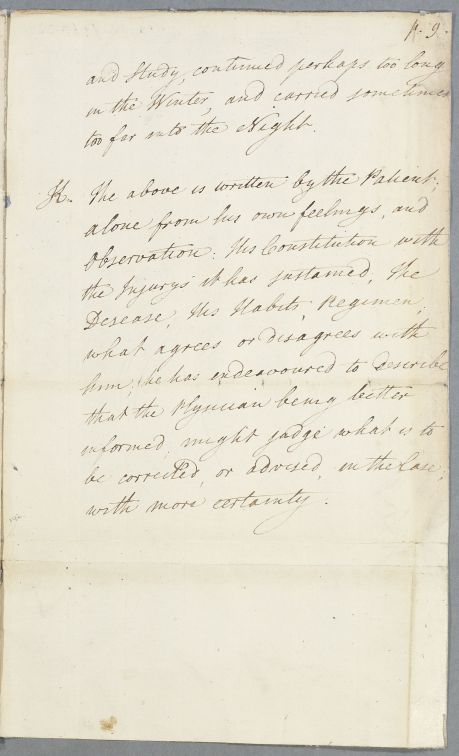 p. 9.
and Study, continued perhaps too long
in the Winter, and carried sometimes
too far into the Night.
K. The above is written by the Patient,
alone from his own feelings, and
Observation: His Constitution with
the Injurys it has sustained, The
Desease, His Habits, Regimen,
what agrees or disagrees with
him; he has endeavoured to describe
that the Physician being better
informed, might judge what is to
be corrected, or advised, in the Case,
with more certainty.